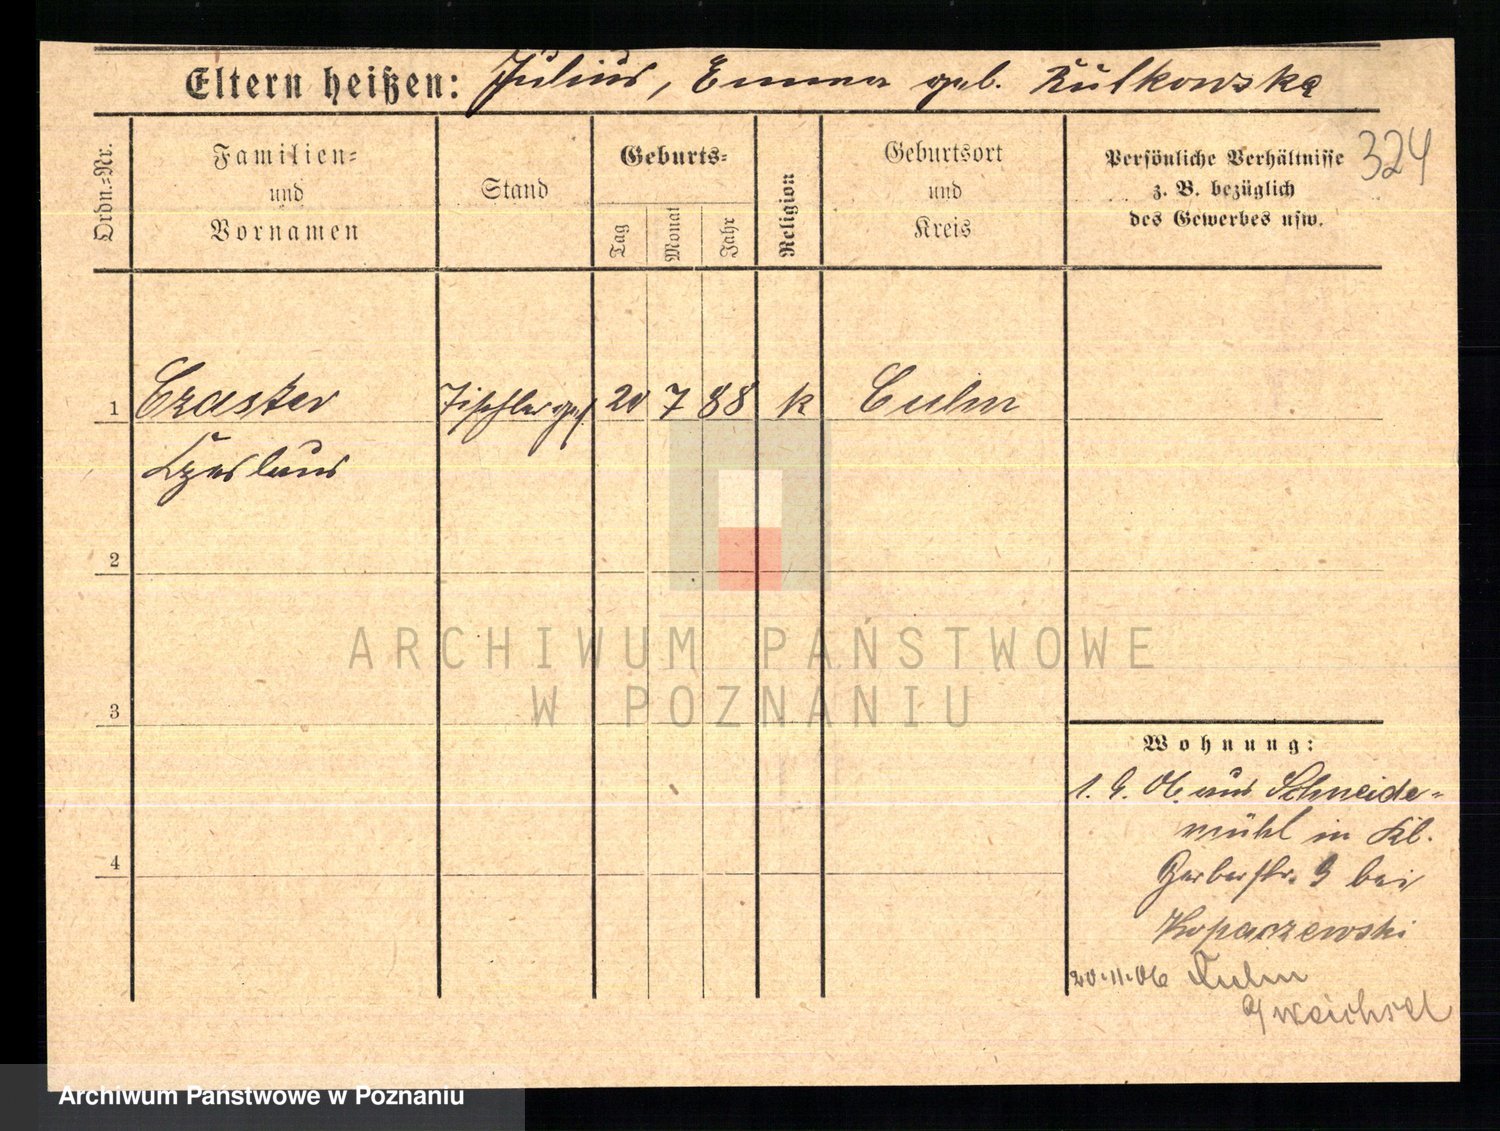 Eltern heißen: Julius, Emma geb. Kulkowska
324
Ordn.-Nr.
Familien-
und
Vornamen
Stand
Geburts-
Tag
Monat
Jahr
Religion
Geburtsort
und
Kreis
Persönliche Verhältnisse
z. B. bezüglich
des Gewerbes usw.
1 Czaster Tischlerges. 20 7 88 k Culm
Czeslaus
2
3
4
Wohnung:
1. 9. 06. aus Schneide-
mühl in Kl.
Gerberstr. 9 bei
Kopaczewski
20.11.06 Culm
a/Weichsel
ARCHIWUM PAŃSTWOWE
W POZNANIU
Archiwum Państwowe w Poznaniu